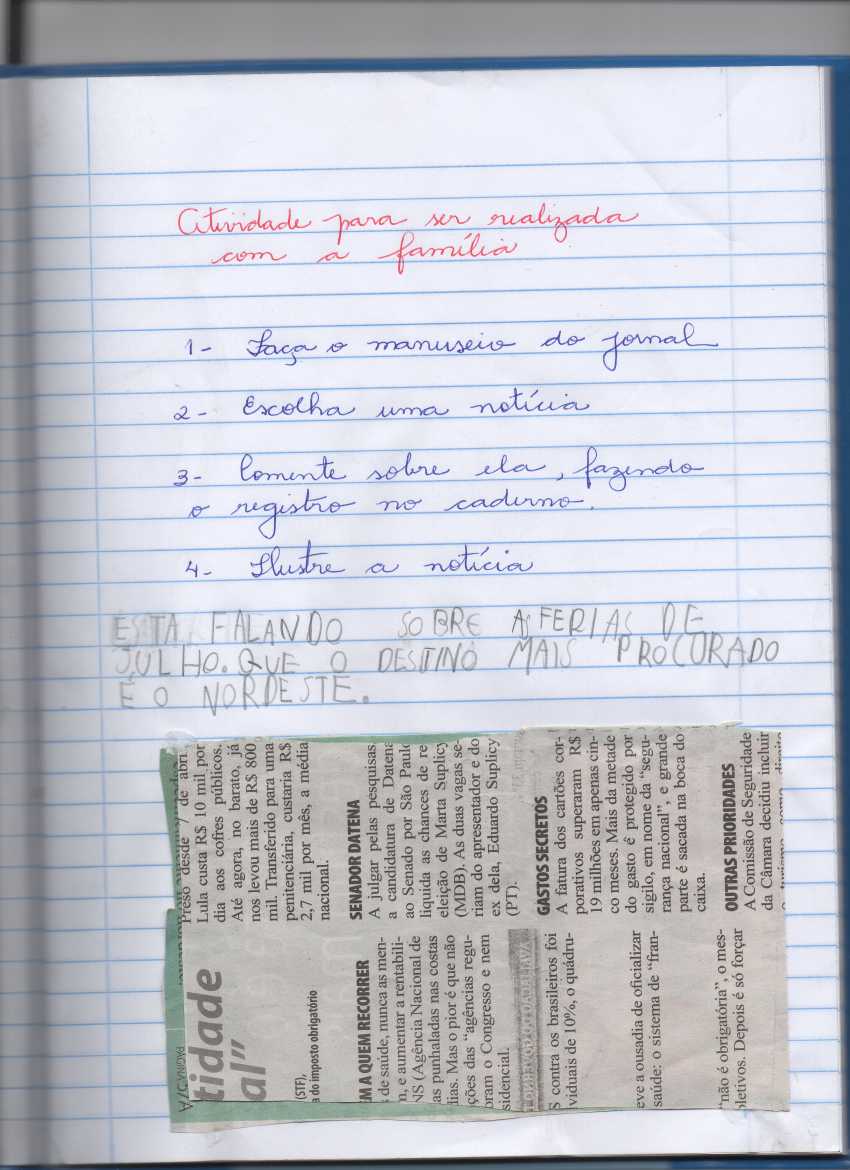 Atividade para ser realizada
com a família
1- Faça o manuseio do jornal
2- Escolha uma notícia
3- Comente sobre ela, fazendo
o registro no caderno.
4- Ilustre a notícia
ESTA FALANDO SOBRE AS FERIAS DE
JULHO. QUE O DESTINO MAIS PROCURADO
E O NORDESTE.
PÁGINA
tidade
al”
(STF),
a do imposto obrigatório
M A QUEM RECORRER
s de saúde, nunca as men-
n, e aumentar a rentabili-
NS (Agência Nacional de
as punhaladas nas costas
dias. Mas o pior é que não
ções das “agências regu-
oram o Congresso e nem
sidencial.
S contra os brasileiros foi
viduais de 10%, o quádru-
eve a ousadia de oficializar
saúde: o sistema de “fran-
“não é obrigatória”, o mes-
letivos. Depois é só forçar
Preso desde 7 de abri
Lula custa R$ 10 mil por
dia aos cofres públicos.
Até agora, no barato, já
nos levou mais de R$ 800
mil. Transferido para uma
penitenciária, custaria R$
2,7 mil por mês, a média
nacional.
SENADOR DATENA
A julgar pelas pesquisas,
a candidatura de Datena
ao Senado por São Paulo
liquida as chances de re
eleição de Marta Suplicy
(MDB). As duas vagas se-
riam do apresentador e do
ex dela, Eduardo Suplicy
(PT).
GASTOS SECRETOS
A fatura dos cartões cor-
porativos superaram R$
19 milhões em apenas cin-
co meses. Mais da metade
do gasto é protegido por
sigilo, em nome da “segu-
rança nacional”, e grande
parte é sacada na boca do
caixa.
OUTRAS PRIORIDADES
A Comissão de Seguridade
da Câmara decidiu incluir
o turismo como direito